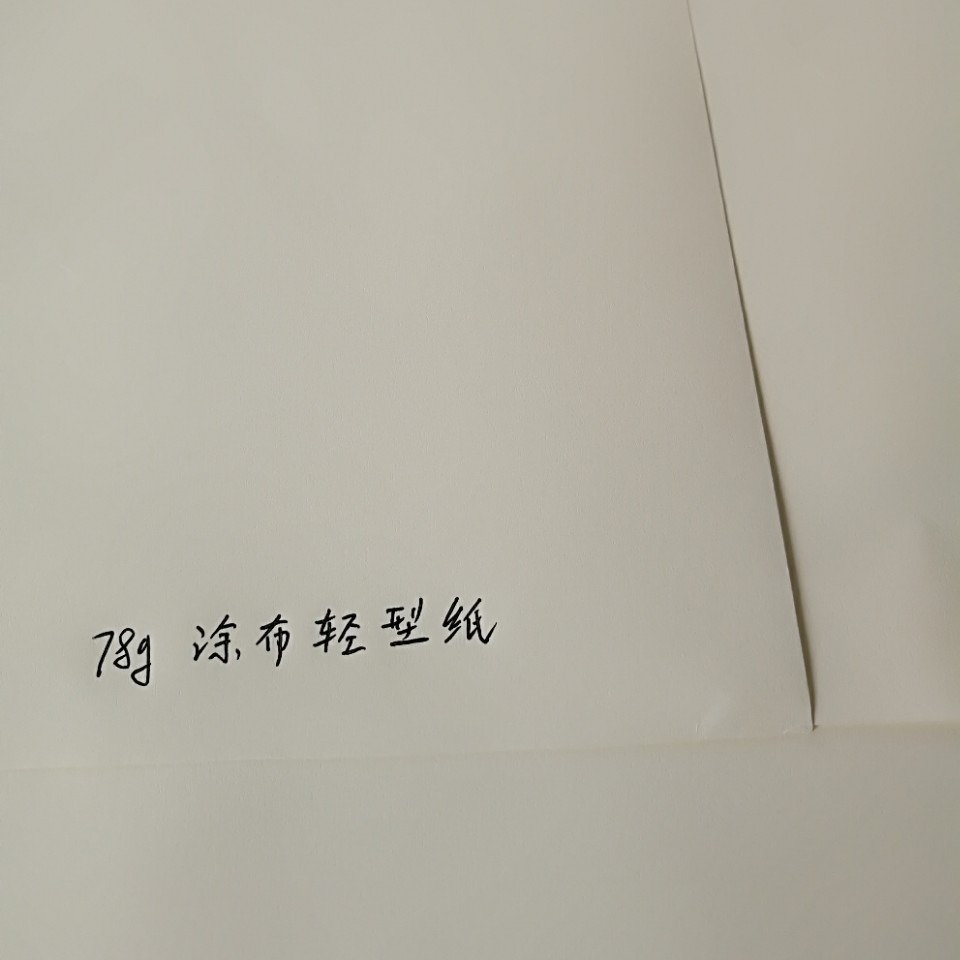 78g 涂布轻型纸